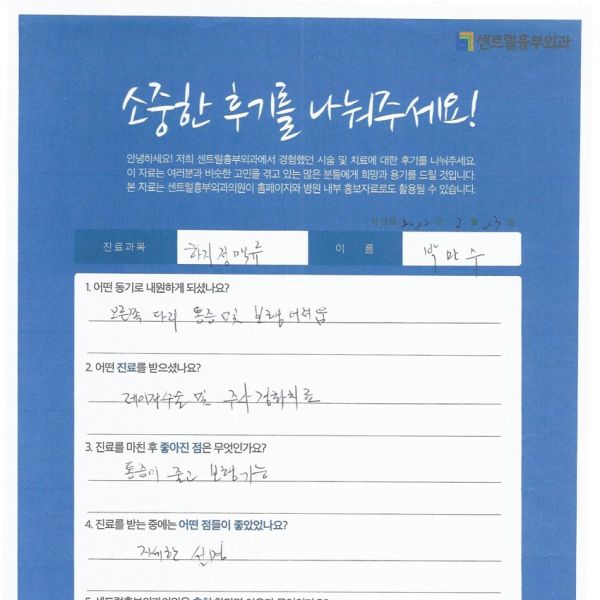 센트럴흉부외과
소중한 후기를 나눠주세요!
안녕하세요! 저희 센트럴흉부외과에서 경험했던 시술 및 치료에 대한 후기를 나눠주세요.
이 자료는 여러분과 비슷한 고민을 겪고 있는 많은 분들에게 희망과 용기를 드릴 것입니다.
본 자료는 센트럴흉부외과의원이 홈페이지와 병원 내부 홍보자료로도 활용될 수 있습니다.
작성일 2022 년 3 월 23 일
진료과목 하지정맥류 이 름 박만수
1. 어떤 동기로 내원하게 되셨나요?
오른쪽 다리 통증 및 보행 어려움
2. 어떤 진료를 받으셨나요?
레이저수술 및 주사경화치료
3. 진료를 마친 후 좋아진 점은 무엇인가요?
통증이 줄고 보행가능
4. 진료를 받는 중에는 어떤 점들이 좋았었나요?
자세한 설명